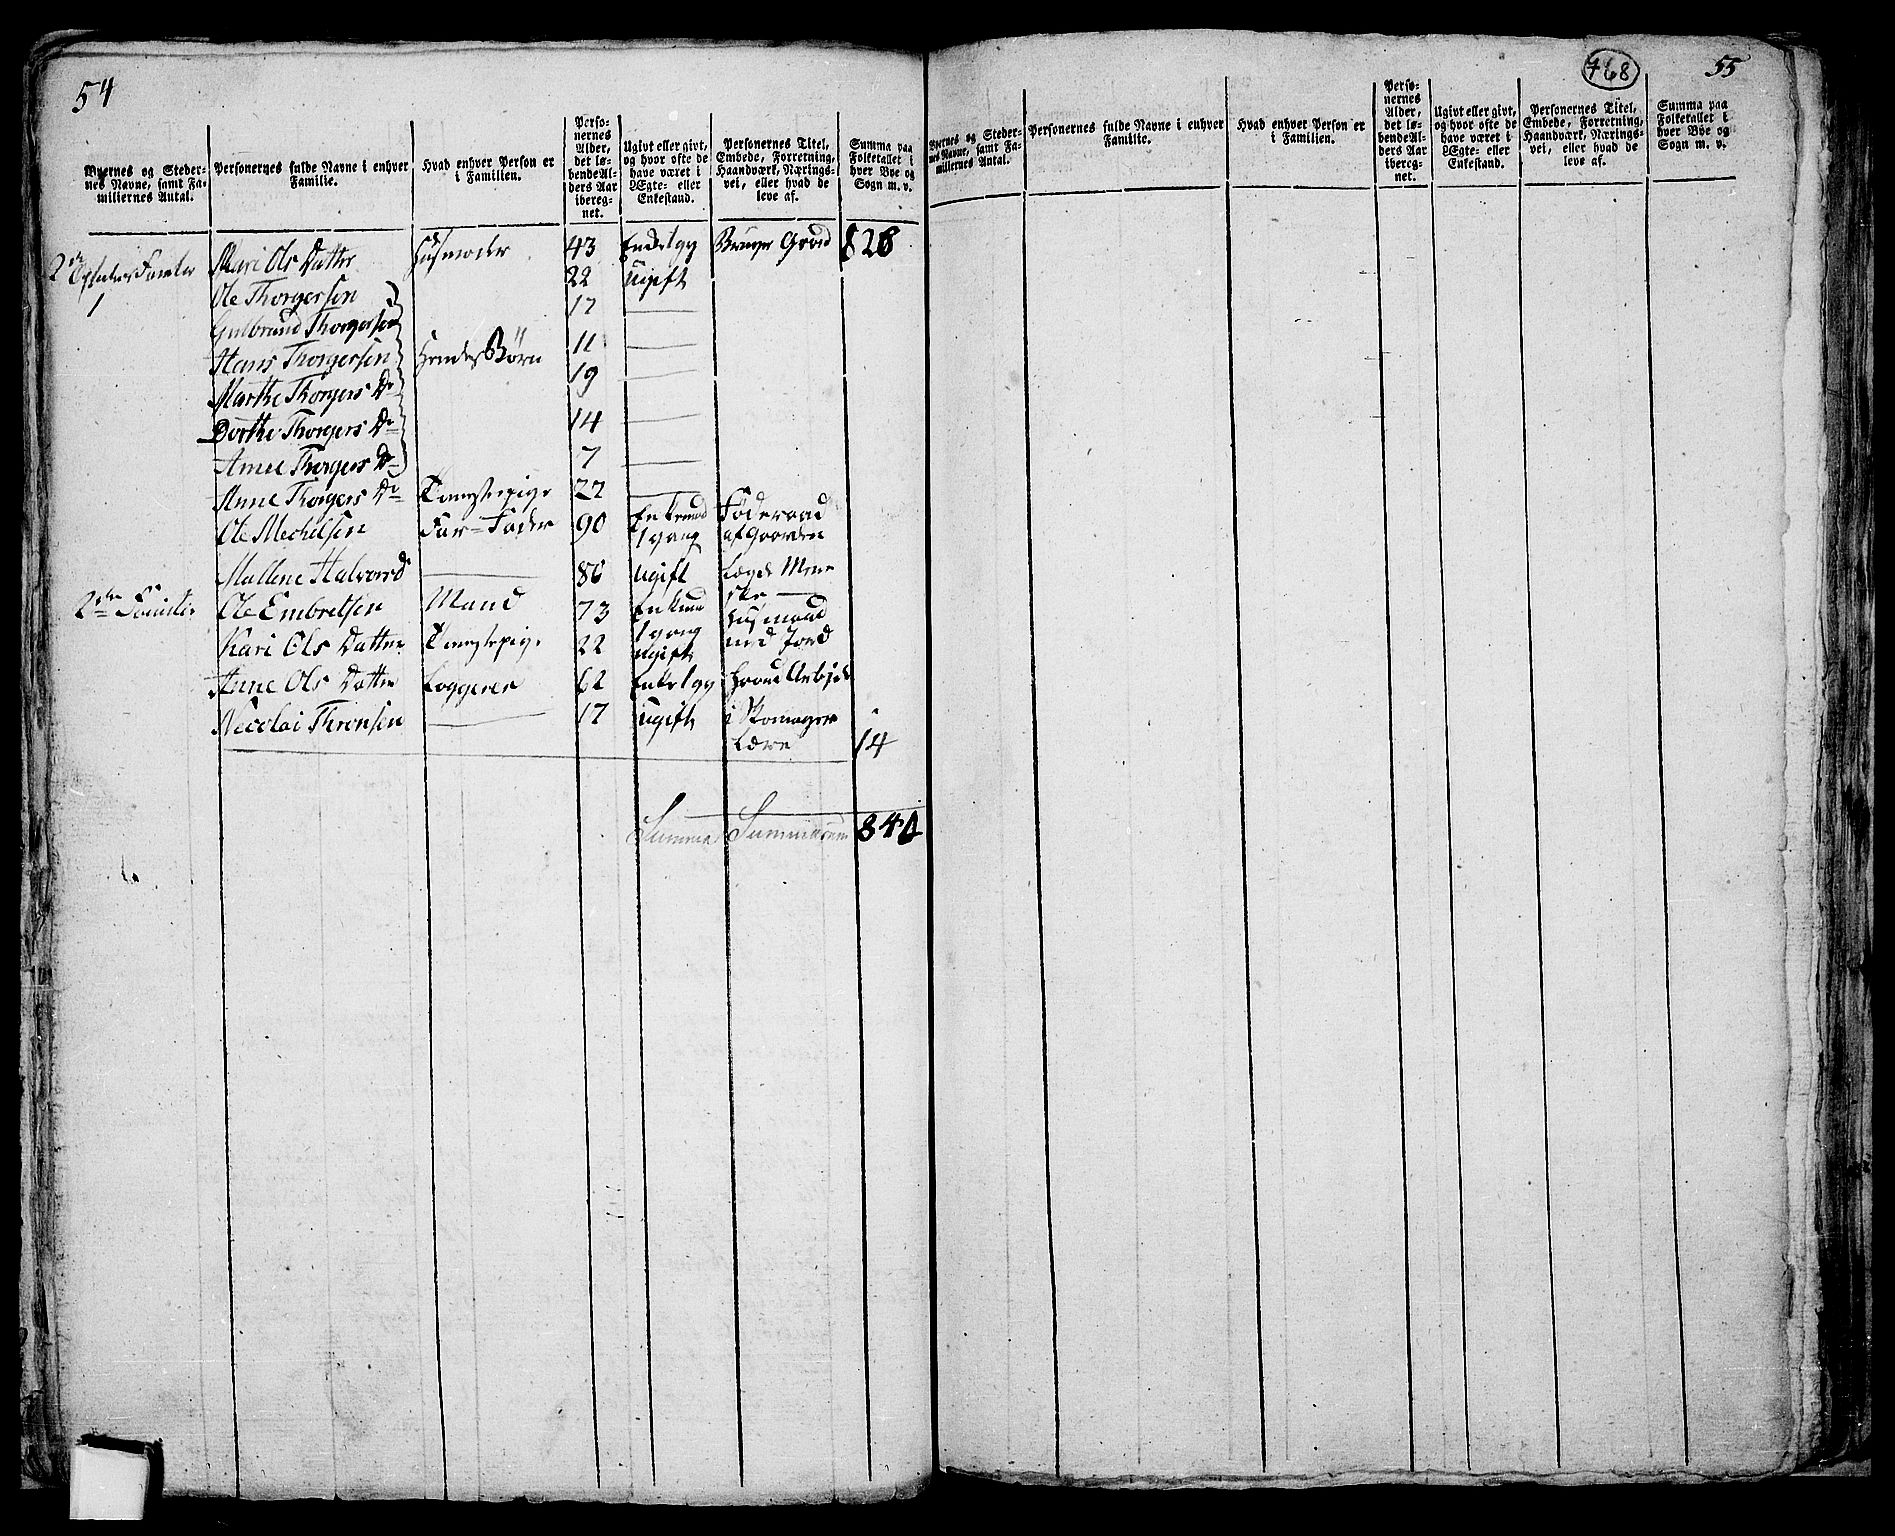 54
Byernes og Steder-
nes Navne, samt Fa-
miliernes Antal.
Personernes fulde Navne i enhver
Familie.
Hvad enhver Person er
i Familien.
Perso-
nernes
Alder,
det lø-
bende Al-
ders Aar
ibereg-
net.
Ugivt eller givt,
og hvor ofte de
have været i
Ægte- eller
Enkestand.
Personernes Titel,
Embede, Forretning,
Haandværk, Nærings-
vei, eller hvad de
leve af.
Summa paa
Folketallet i
hver Bye og
Sogn m. v.
Mari Ols Datter Huusmoder 43 Enke 1 gg Bruger Gaard 826
1
Ole Thorgersen 22 Ugift
Gulbrand Thorgersen 17
Hans Thorgersen Hendes Børn 11
Marthe Thorgers Dr 19
Dorthe Thorgers Dr 14
Anne Thorgers Dr 7
Anne Thorgers Dr Tienestepige 22
Ole Mechelsen Far-Fader 90 Enkemand Føderaad
1 gang af Gaarden
Mallene Halvorsd 86 Ugift Lægds Menne
ske
2den Familie Ole Embretsen Mand 73 Enkemd Huusmand
1 gang med Jord
Kari Ols Datter Tienstepige 22 ugift
Anne Ols Datter Loggerer 62 Enke 1 gg Haand Arbeide
Necolai 17 Ugift i Skomager
Lære 14
Summa Summarum 840
768
55
Byernes og Steder-
nes Navne, samt Fa-
miliernes Antal.
Personernes fulde Navne i enhver
Familie.
Hvad enhver Person er
i Familien.
Perso-
nernes
Alder,
det lø-
bende Al-
ders Aar
ibereg-
net.
Ugivt eller givt,
og hvor ofte de
have været i
Ægte- eller
Enkestand.
Personernes Titel,
Embede, Forretning,
Haandværk, Nærings-
vei, eller hvad de
leve af.
Summa paa
Folketallet i
hver Bye og
Sogn m. v.